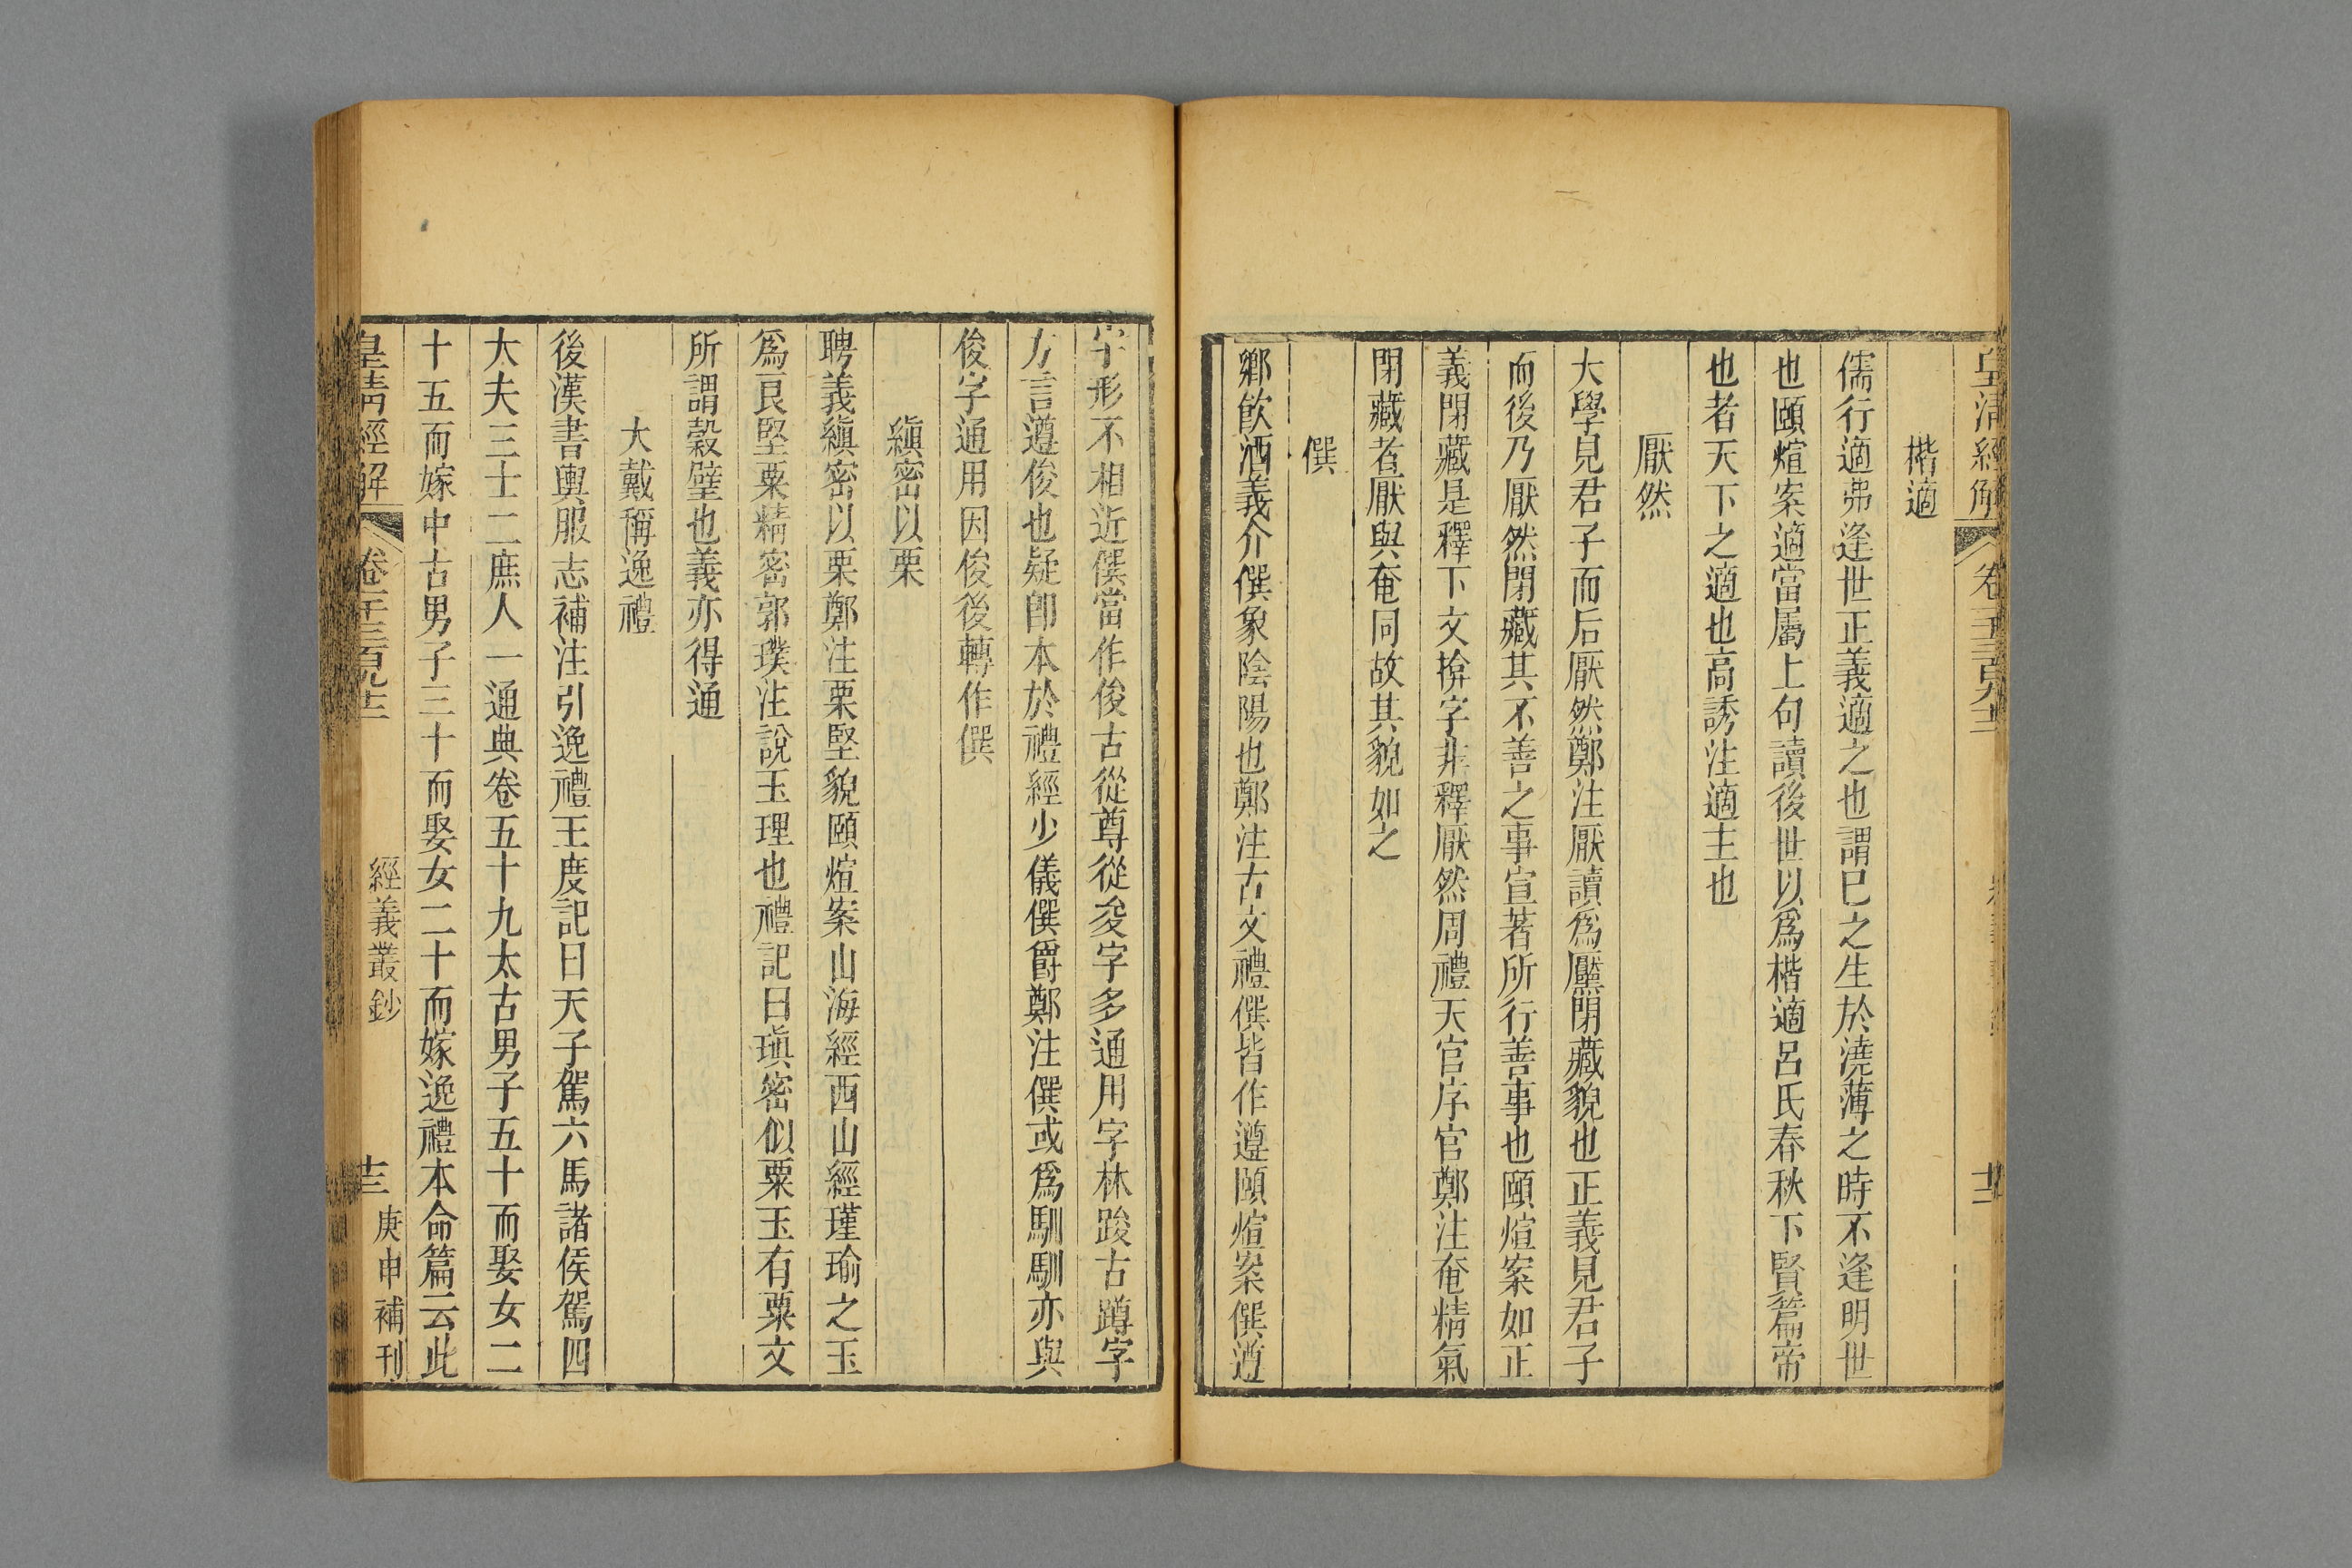 皇清經解
卷
楷適
儒行適弗逢世正義適之也謂巳之生於澆薄之時不逢明世
也頤煊案適當屬上句讀後世以爲楷適呂氏春秋下賢篇帝
也者天下之適也高誘注適主也
厭然
大學見君子而后厭然鄭注厭讀爲黶閉藏貌也正義見君子
而後乃厭然閉藏其不善之事宣著所行善事也頤煊案如正
義閉藏是釋下文揜字非釋厭然周禮天官序官鄭注奄精氣
閉藏者厭與奄同故其貌如之
僎
鄉飲酒義介僎象陰陽也鄭注古文禮僎皆作遵頤煊案僎遵
字形不相近僎當作俊古從尊從夋字多通用字林踆古蹲字
方言遵俊也疑卽本於禮經少儀僎爵鄭注僎或爲馴馴亦與
俊字通用因俊後轉作僎
縝密以栗
聘義縝密以栗鄭注栗堅貌頤煊案山海經西山經瑾瑜之玉
爲良堅粟精密郭璞注說玉理也禮記曰瑱密似粟玉有粟文
所謂穀璧也義亦得通
大戴稱逸禮
後漢書輿服志補注引逸禮王度記曰天子駕六馬諸侯駕四
大夫三士二庶人一通典卷五十九太古男子五十而娶女二
十五而嫁中古男子三十而娶女二十而嫁逸禮本命篇云此
皇清經解
卷
經義叢鈔
十三
庚申補刊